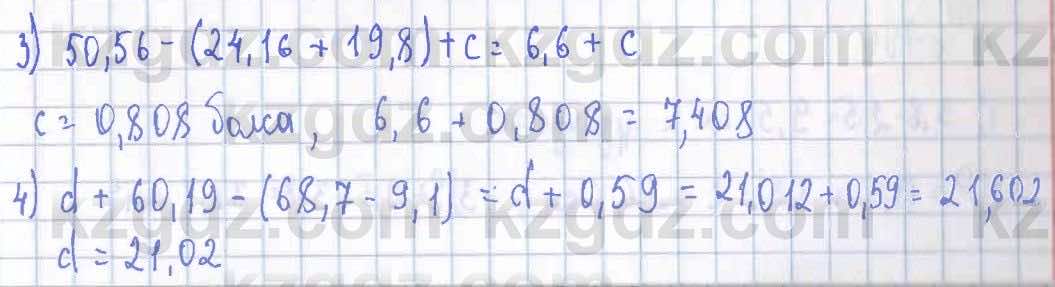 3) 50,56 - (24,16 + 19,8) + c = 6,6 + c
c = 0,808 болса, 6,6 + 0,808 = 7,408
4) d + 60,19 - (68,7 - 9,1) = d + 0,59 = 21,012 + 0,59 = 21,602
d = 21,02